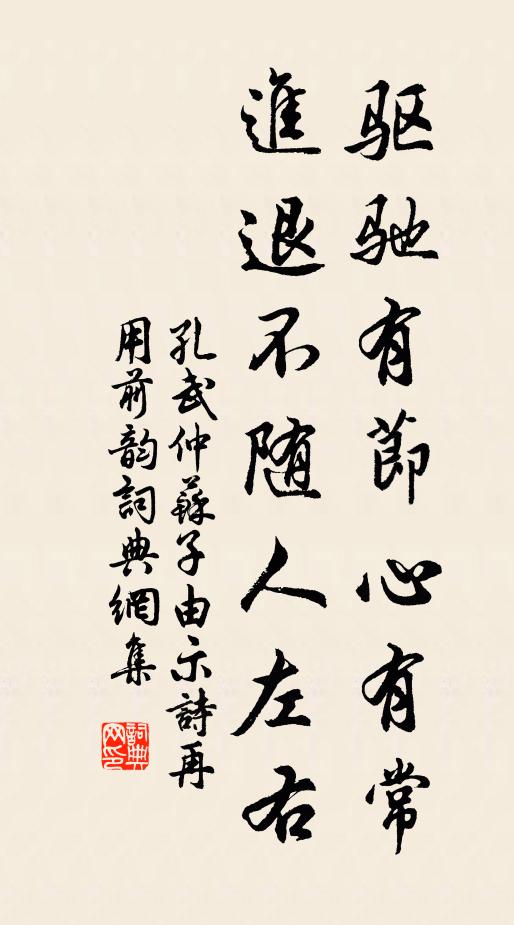 驱驰有節心有常
進退不随人左右
孔武仲蘇子由示詩再
用前韵詞典網集
詞典网印